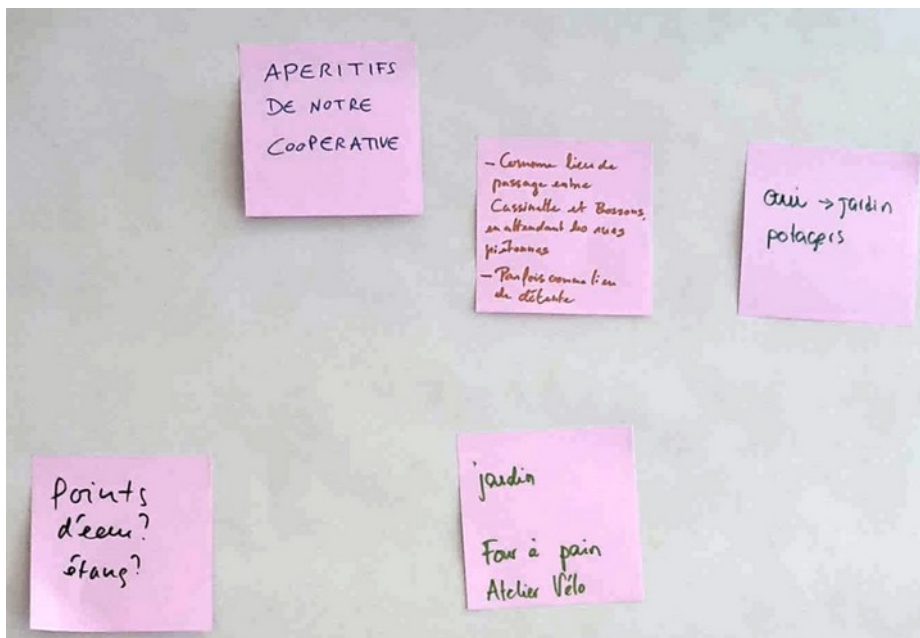 APERITIFS
DE NOTRE
COOPERATIVE
- Comme lieu de
passage entre
Cassinette et Bossons,
en attendant les rues
piétonnes
- Parfois comme lieu
de détente
oui → jardin
potagers
Points
d'eau?
étang?
jardin
Four à pain
Atelier Vélo